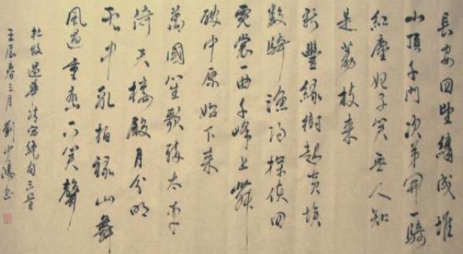 長安回望繡成堆
山頂千門次第開一騎
紅塵妃子笑無人知
是荔枝來
新豐綠樹起黃埃
數騎漁陽探使回
霓裳一曲千峰上舞
破中原始下來
萬國笙歌醉太平
倚天樓殿月分明
雲中亂拍祿山舞
風過重巒下笑聲
杜牧過華清宮絕句三首
壬辰春三月劉書